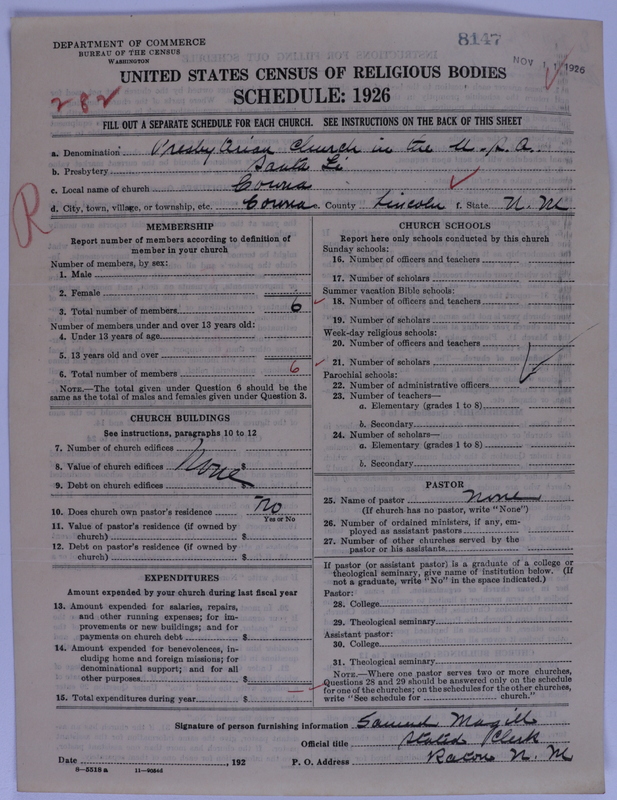 DEPARTMENT OF COMMERCE
BUREAU OF THE CENSUS
WASHINGTON
8147
NOV 1 1926
UNITED STATES CENSUS OF RELIGIOUS BODIES
SCHEDULE: 1926
282
FILL OUT A SEPARATE SCHEDULE FOR EACH CHURCH. SEE INSTRUCTIONS ON THE BACK OF THIS SHEET
a. Denomination Presbyterian Church in the U.S.A.
b. Presbytery Santa Fe
c. Local name of church Corona
d. City, town, village, or township, etc. Corona e. County Lincoln f. State N. M
R
MEMBERSHIP
Report number of members according to definition of
member in your church
Number of members, by sex:
1. Male
2. Female
3. Total number of members 6
Number of members under and over 13 years old:
4. Under 13 years of age
5. 13 years old and over
6. Total number of members 6
NOTE.—The total given under Question 6 should be
same as the total of males and females given under Question 3.
CHURCH BUILDINGS
See instructions, paragraphs 10 to 12
7. Number of church edifices
8. Value of church edifices None $
9. Debt on church edifices $
10. Does church own pastor's residence No
Yes or No
11. Value of pastor's residence (if owned by
church) $
12. Debt on pastor's residence (if owned by
church) $
EXPENDITURES
Amount expended by your church during last fiscal year
13. Amount expended for salaries, repairs,
and other running expenses; for im-
provements or new buildings; and for
payments on church debt $
14. Amount expended for benevolences, in-
cluding home and foreign missions; for
denominational support; and for all
other purposes $
15. Total expenditures during year $
CHURCH SCHOOLS
Report here only schools conducted by this church
Sunday schools:
16. Number of officers and teachers
17. Number of scholars
Summer vacation Bible schools:
18. Number of officers and teachers
19. Number of scholars
Week-day religious schools:
20. Number of officers and teachers
21. Number of scholars
Parochial schools:
22. Number of administrative officers
23. Number of teachers—
a. Elementary (grades 1 to 8)
b. Secondary
24. Number of scholars—
a. Elementary (grades 1 to 8)
b. Secondary
PASTOR
25. Name of pastor None
(If church has no pastor, write "None")
26. Number of ordained ministers, if any, em-
ployed as assistant pastors
27. Number of other churches served by the
pastor or his assistants
If pastor (or assistant pastor) is a graduate of a college or
theological seminary, give name of institution below. (If
not a graduate, write "No" in the space indicated.)
Pastor:
28. College
29. Theological seminary
Assistant pastor:
30. College
31. Theological seminary
NOTE.—Where one pastor serves two or more churches,
Questions 28 and 29 should be answered only on the schedule
for one of the churches; on the schedules for the other churches,
write "See schedule for church."
Signature of person furnishing information Samuel Magill
Official title Stated Clerk
Date , 192 P. O. Address Raton N. M
8—5518 a 11—9086d